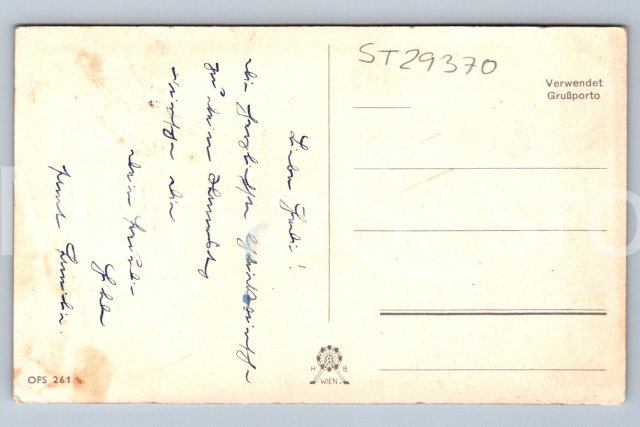 ST29370
Verwendet
Grußporto
Liebe
Die herzlichsten Glückwünsche
zu Deinem Namenstag
wünscht Dir
Deine Freundin
samt Familie.
H B
WIEN
OFS 261